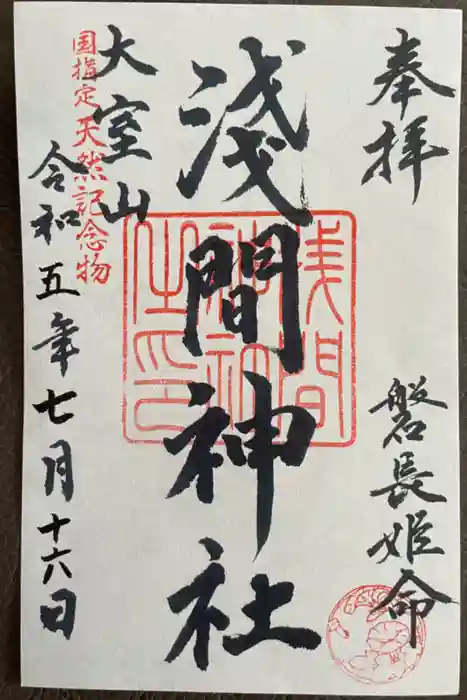 奉拝
磐長姫命
浅間神社
浅間
神社
之印
大室山
国指定天然記念物
令和五年七月十六日